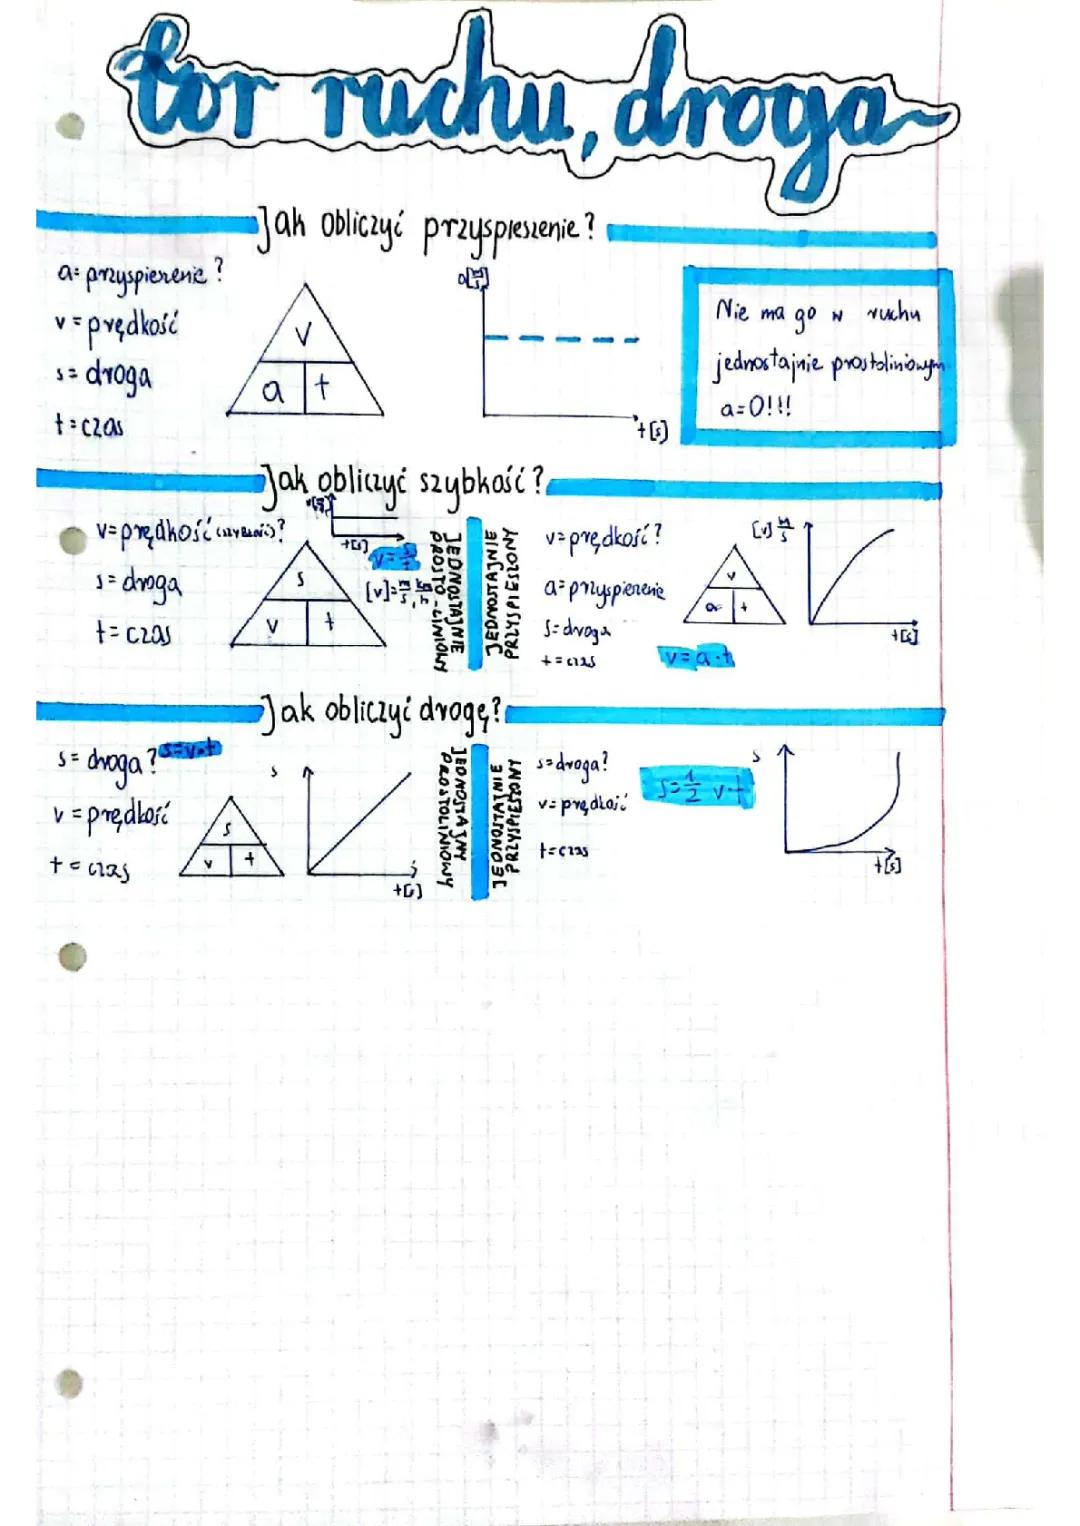 tor ruchu, droga
Jak obliczyć przyspieszenie?
a= przyspieszenie?
v = prędkość
s= droga
t=czas
v
a t
t[s]
Nie ma go w ruchu
jednostajnie prostoliniowym
a=0!!!
Jak obliczyć szybkość?
v=prędkość (szybkość)?
s= droga
t= czas
s
v t
t[s]
v=s/t
[v]=m/s, km/h
JEDNOSTAJNIE
PROSTO-LINIOWY
JEDNOSTAJNIE
PRZYSPIESZONY
v=prędkość?
a=przyspieszenie
s=droga
t=czas
v
a t
v=a·t
[v] m/s
t[s]
Jak obliczyć drogę?
s= droga? s=v·t
v=prędkość
t=czas
s
v t
s
t[s]
JEDNOSTAJNY
PROSTOLINIOWY
JEDNOSTAJNIE
PRZYSPIESZONY
s=droga?
v=prędkość
t=czas
s=1/2 v·t
s
t[s]